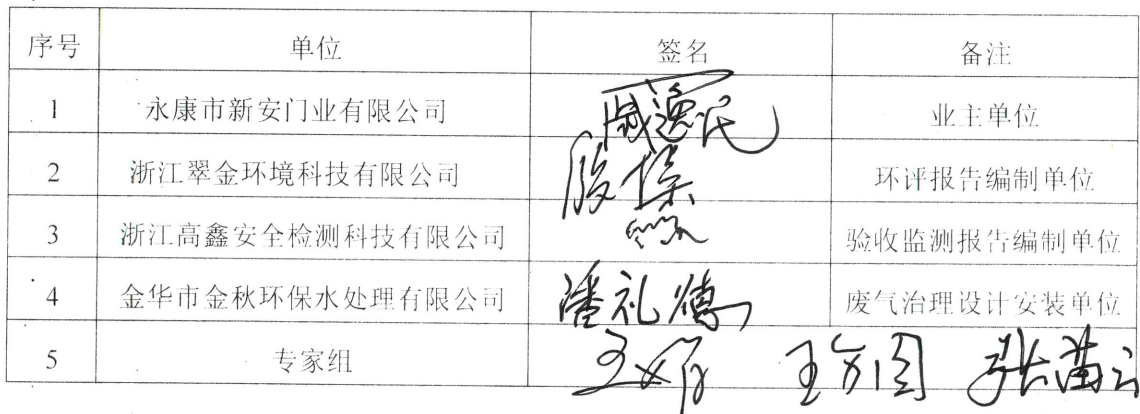 序号 单位 签名 备注
1 永康市新安门业有限公司 业主单位
2 浙江翠金环境科技有限公司 环评报告编制单位
3 浙江高鑫安全检测科技有限公司 验收监测报告编制单位
4 金华市金秋环保水处理有限公司 潘礼德 废气治理设计安装单位
5 专家组